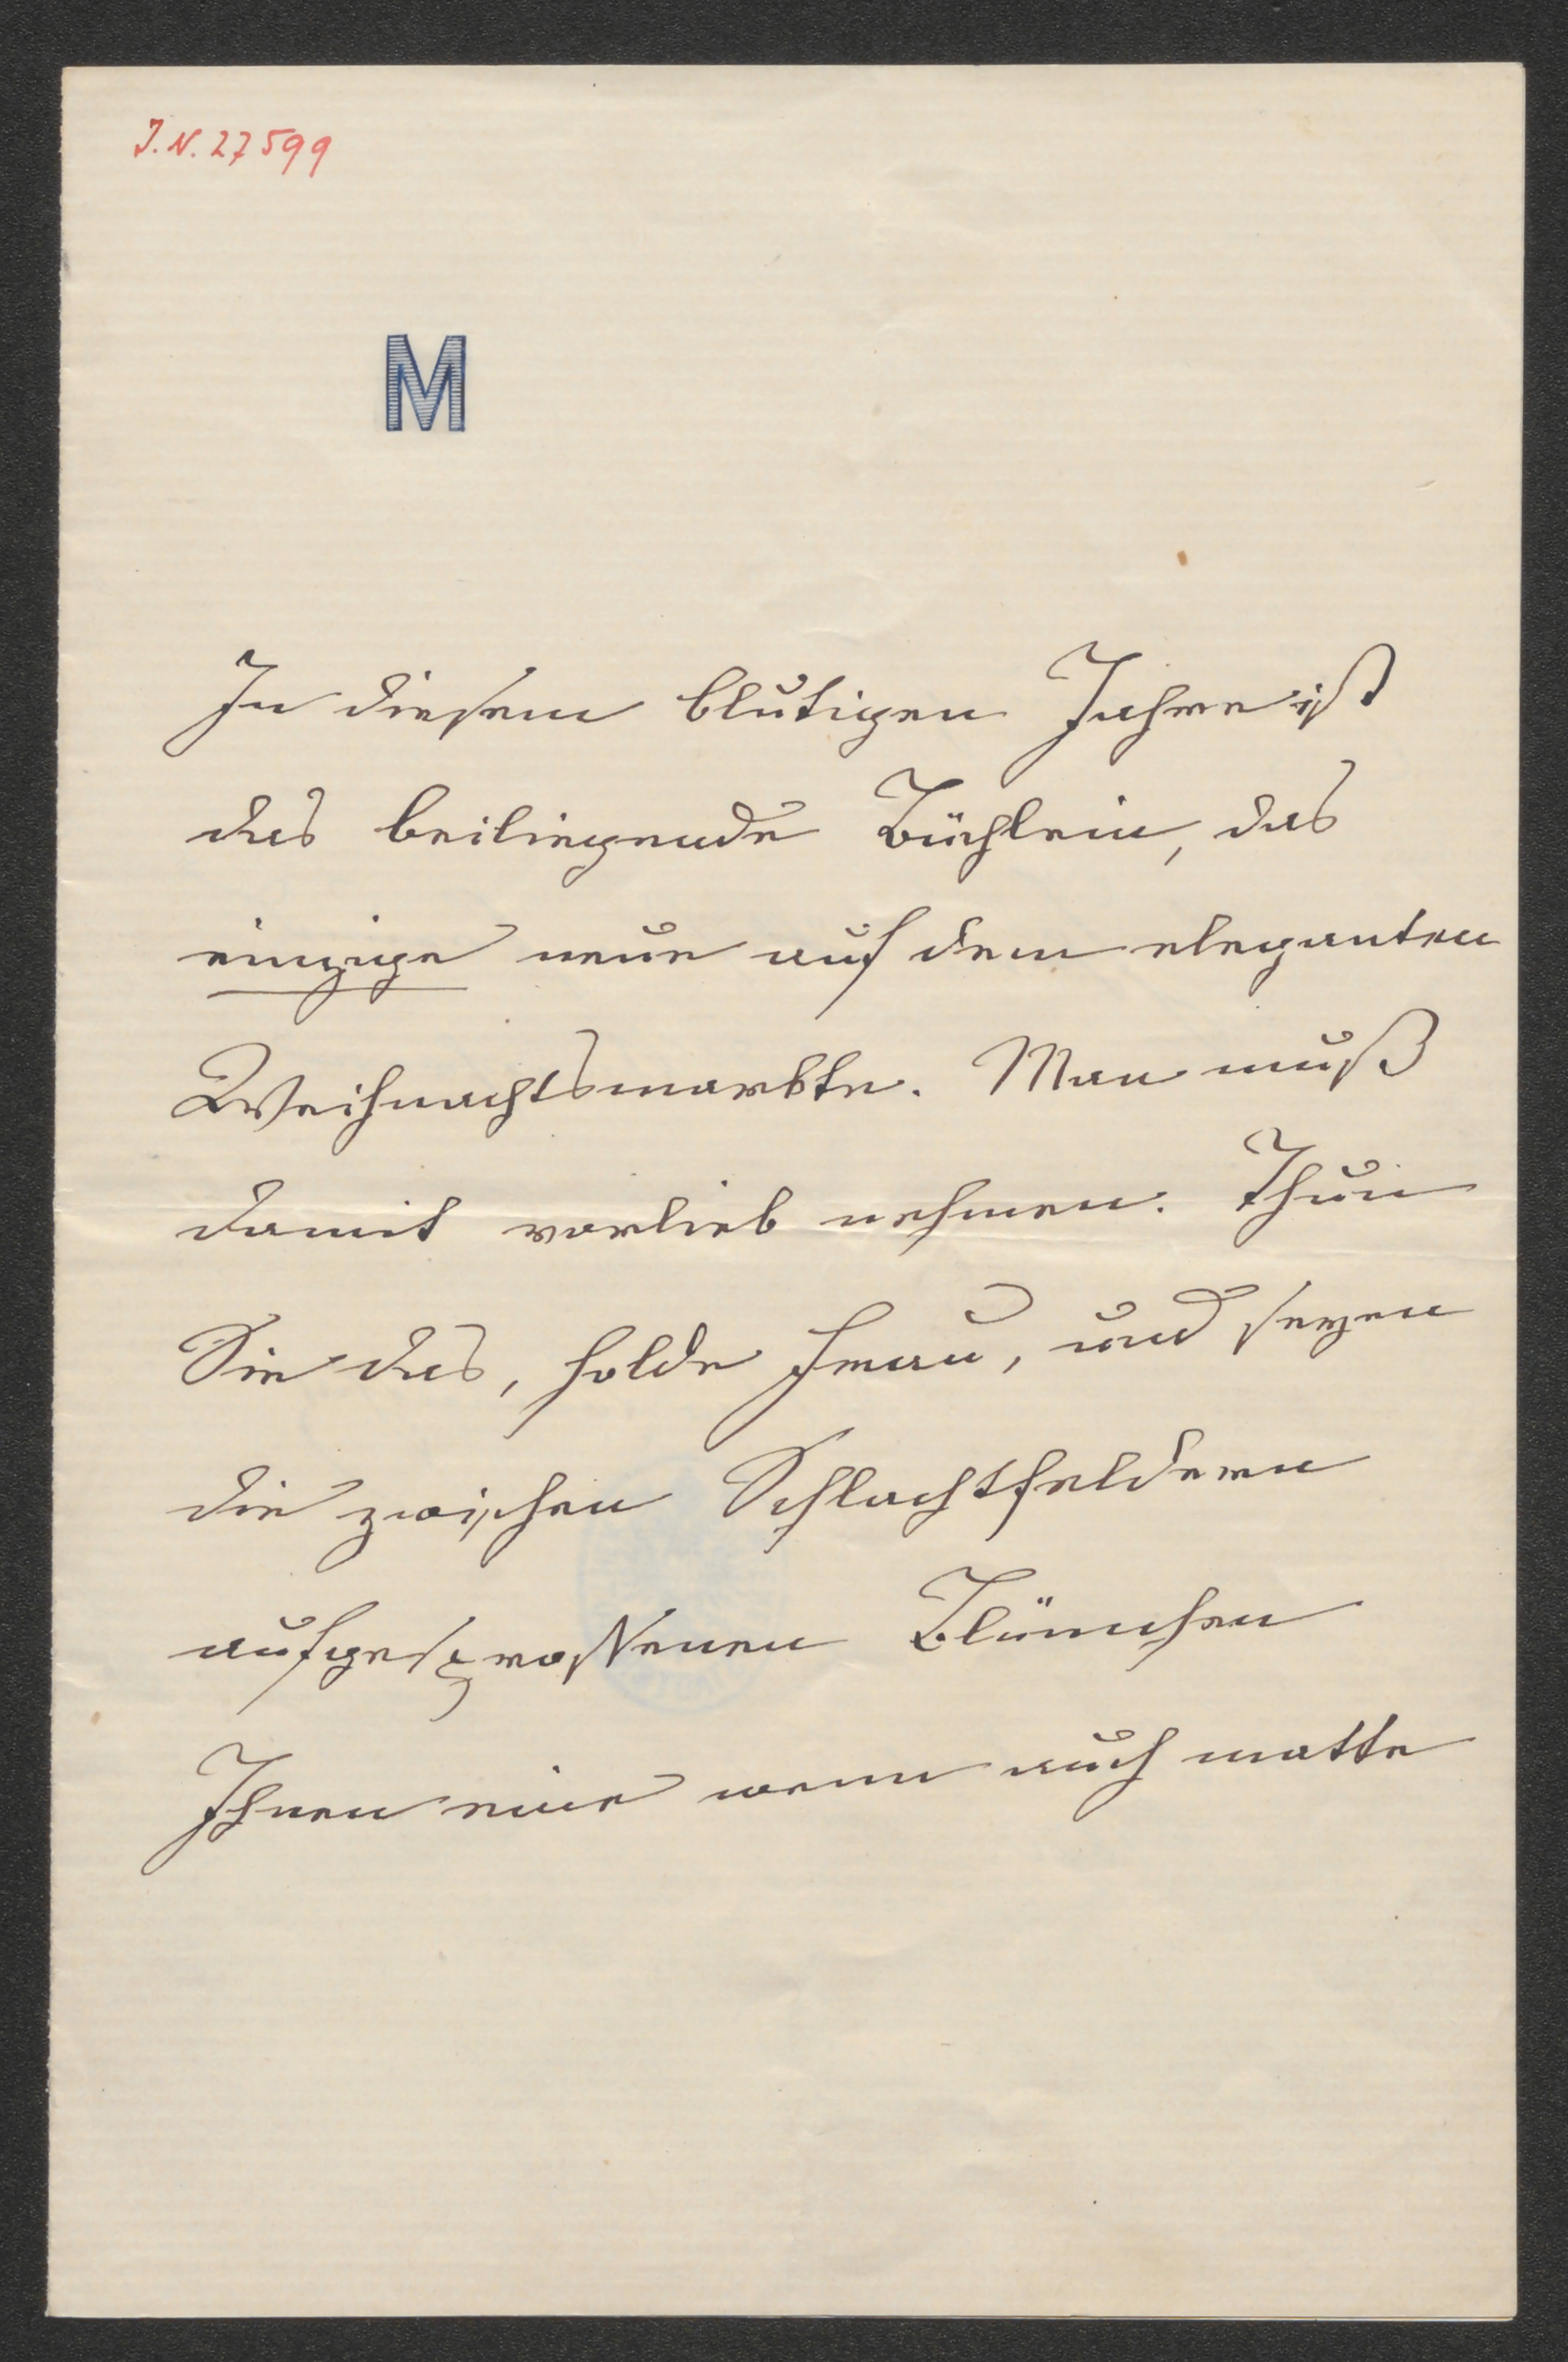 J.N. 27599
M
In diesem blutigen Jahre ist
das beiliegende Büchlein, das
einzige neue auf dem eleganten
Weihnachtsmarkte. Man muß
damit vorlieb nehmen. Thun
Sie das, holde Frau, und seyen
die zwischen Schlachtfeldern
aufgesproßenen Blümchen
Ihnen eine wenn auch matte